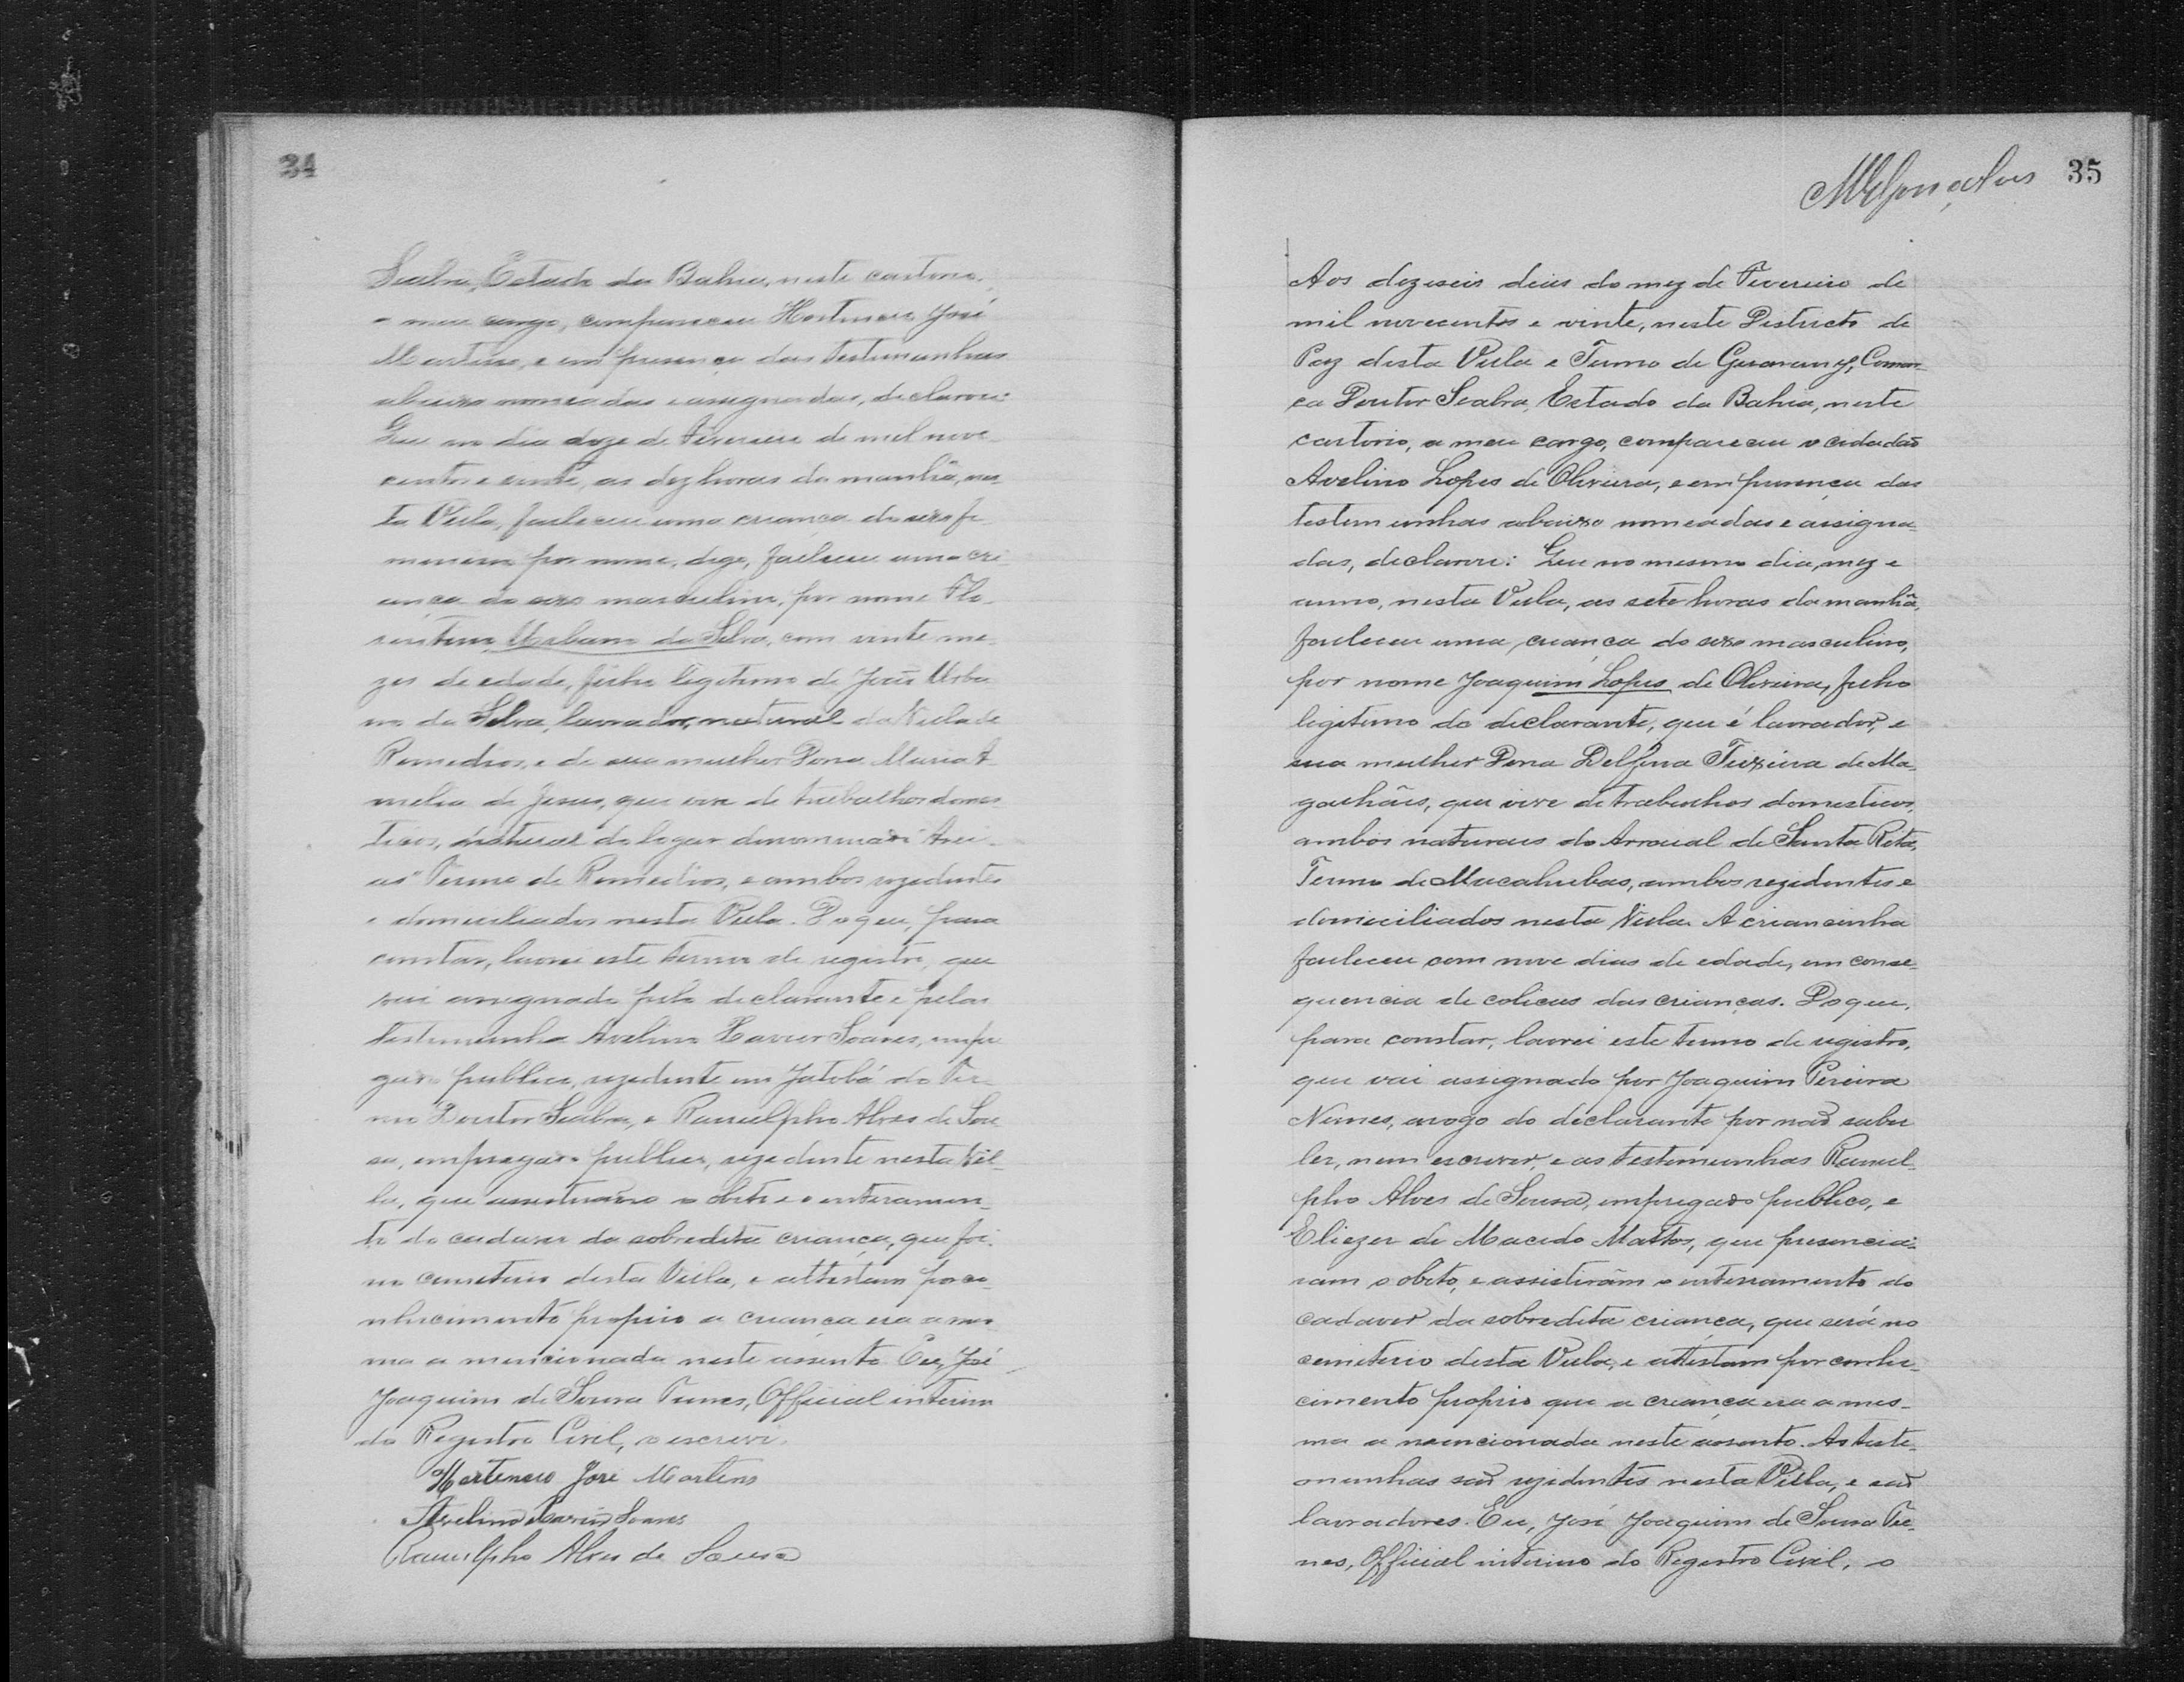 34
Seabra, Estado da Bahia, neste cartorio,
a meu cargo, compareceu Hortencio José
Martins, e em presença das testemunhas
abaixo nomeadas e assignadas, declarou:
Que no dia doze de Fevereiro de mil nove-
centos e vinte, as dez horas da manhã, nes-
ta Villa, falleceu uma criança do sexo fe-
menino por nome, digo, falleceu uma cri-
ança do sexo masculino, por nome Flo-
rentino Urbano da Silva, com vinte me-
zes de edade, filho legitimo de João Urba-
no da Silva, lavrador, natural da Villa de
Remedios, e de sua mulher Dona Maria A-
melia de Jesus, que vive de trabalhos domes-
ticos, natural do logar denominado
Termo de Remedios, e ambos rezidentes
e domiciliados nesta Villa. Do que, para
constar, lavrei este termo de registro, que
vai assignado pelo declarante e pelas
testemunha Avelino Xavier Soares, empre-
gado publico, rezidente em Jatobá do Ter-
mo Doutor Seabra, e Ranulpho Alves de Sou-
sa, empregado publico, rezidente nesta Vil-
la, que assistirão o obito e o enteramen-
to do cadaver da sobredita criança, que foi
no cemiterio desta Villa, e attestam por co-
nhecimento proprio a criança era a mes-
ma a mencionada neste assento. Eu, José
Joaquim de Sousa Tunes, Official interino
do Registro Civil, o escrevi.
Hortencio José Martins
Avelino Xavier Soares
Ranulpho Alves de Sousa
MGonçalves 35
Aos dezeseis dias do mez de Fevereiro de
mil novecentos e vinte, neste Districto de
Paz desta Villa e Termo de Guarany, Comar-
ca Doutor Seabra, Estado da Bahia, neste
cartorio, a meu cargo, compareceu o cidadão
Avelino Lopes de Oliveira, e em presença das
testemunhas abaixo nomeadas e assigna-
das, declarou: Que no mesmo dia, mez e
anno, nesta Villa, as sete horas da manhã,
falleceu uma criança do sexo masculino,
por nome Joaquim Lopes de Oliveira, filho
legitimo do declarante, que é lavrador, e
sua mulher Dona Delfina Teixeira de Ma-
galhães, que vive de trabalhos domesticos,
ambos naturaes do Arraial de Santa Rita,
Termo de Macahubas, ambos rezidentes e
domiciliados nesta Villa. A criancinha
falleceu com nove dias de edade, em conse-
quencia de colicas das crianças. Do que,
para constar, lavrei este termo de registro,
que vai assignado por Joaquim Pereira
Nunes, arogo do declarante por não saber
ler, nem escrever, e as testemunhas Ranul-
pho Alves de Sousa, empregado publico, e
Eliezer de Macedo Mattos, que presencia-
ram o obito, e assistirám o enterramento do
cadaver da sobredita criança, que será no
cemiterio desta Villa, e attestam por conhe-
cimento proprio que a criança era a mes-
ma a mencionada neste assento. As teste-
munhas são rezidentes nesta Villa, e são
lavradores. Eu, José Joaquim de Sousa Tu-
nes, Official interino do Registro Civil, o